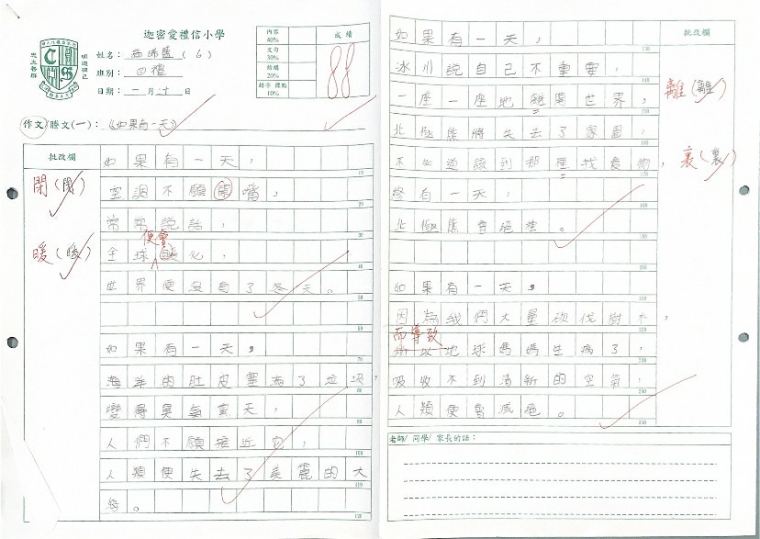 迦密愛禮信小學
姓名:
(6)
班別: 四禮
日期: 一月二十日
內容 40%
文句 30%
結構 20%
錯字 標點 10%
成績
88
作文/謄文(一): 《如果有一天》
批改欄
閉(閉)
暖(暖)
如果有一天,
空調不願閉嘴,
常常說話,
全球便會暖化,
世界便沒有了冬天。
如果有一天,
海洋的肚皮塞滿了垃圾,
變得臭氣熏天,
人們不願接近它,
人類便失去了美麗的大
海。
如果有一天,
冰川說自己不重要,
一座一座地離開世界,
北極熊將失去了家園,
不知道該到那裡找食物,
終有一天,
北極熊會絕種。
如果有一天,
因為我們大量砍伐樹木,
而導致
所以地球媽媽生病了,
吸收不到清新的空氣,
人類便會滅絕。
批改欄
離(離)
裏(裏)
老師/同學/家長的話: